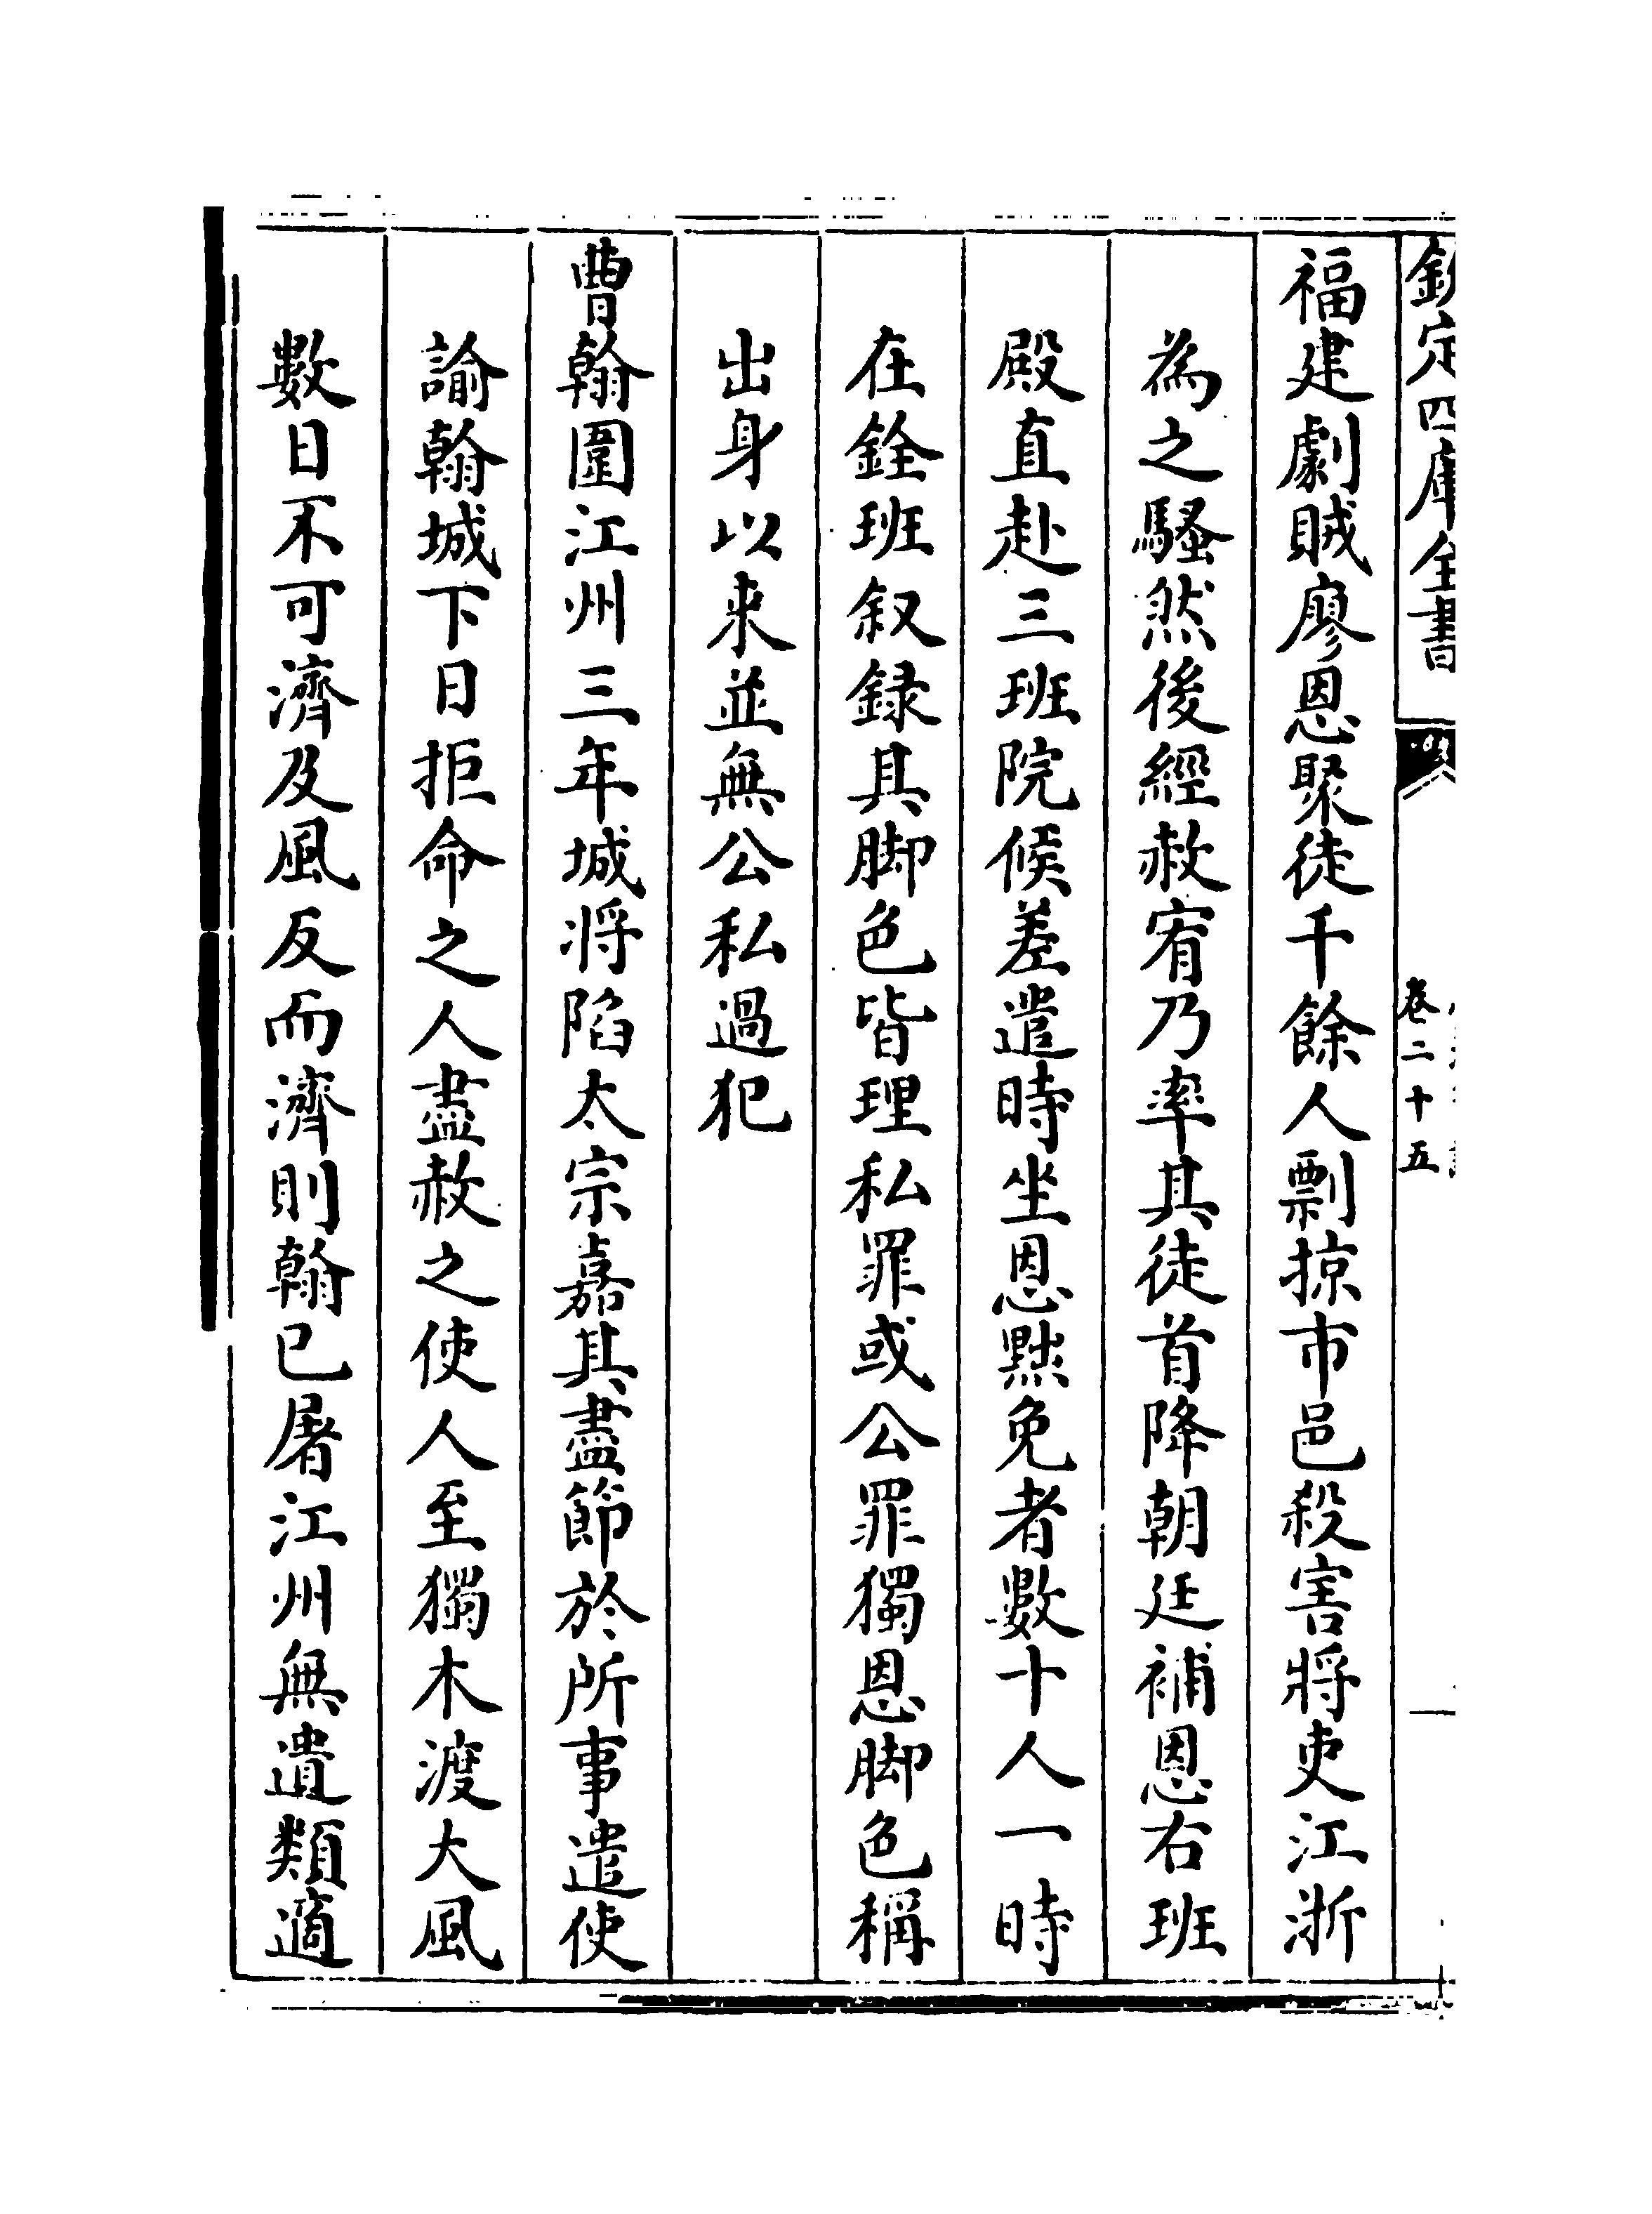 欽定四庫全書
卷二十五
福建劇賊廖恩聚徒千餘人剽掠市邑殺害將吏江浙
為之騷然後經赦宥乃率其徒首降朝廷補恩右班
殿直赴三班院候差遣時坐恩黜免者數十人一時
在銓班叙録其脚色皆理私罪或公罪獨恩脚色稱
出身以来並無公私過犯
曹翰圍江州三年城将陷太宗嘉其盡節於所事遣使
諭翰城下日拒命之人盡赦之使人至獨木渡大風
數日不可濟及風反而濟則翰已屠江州無遺類適